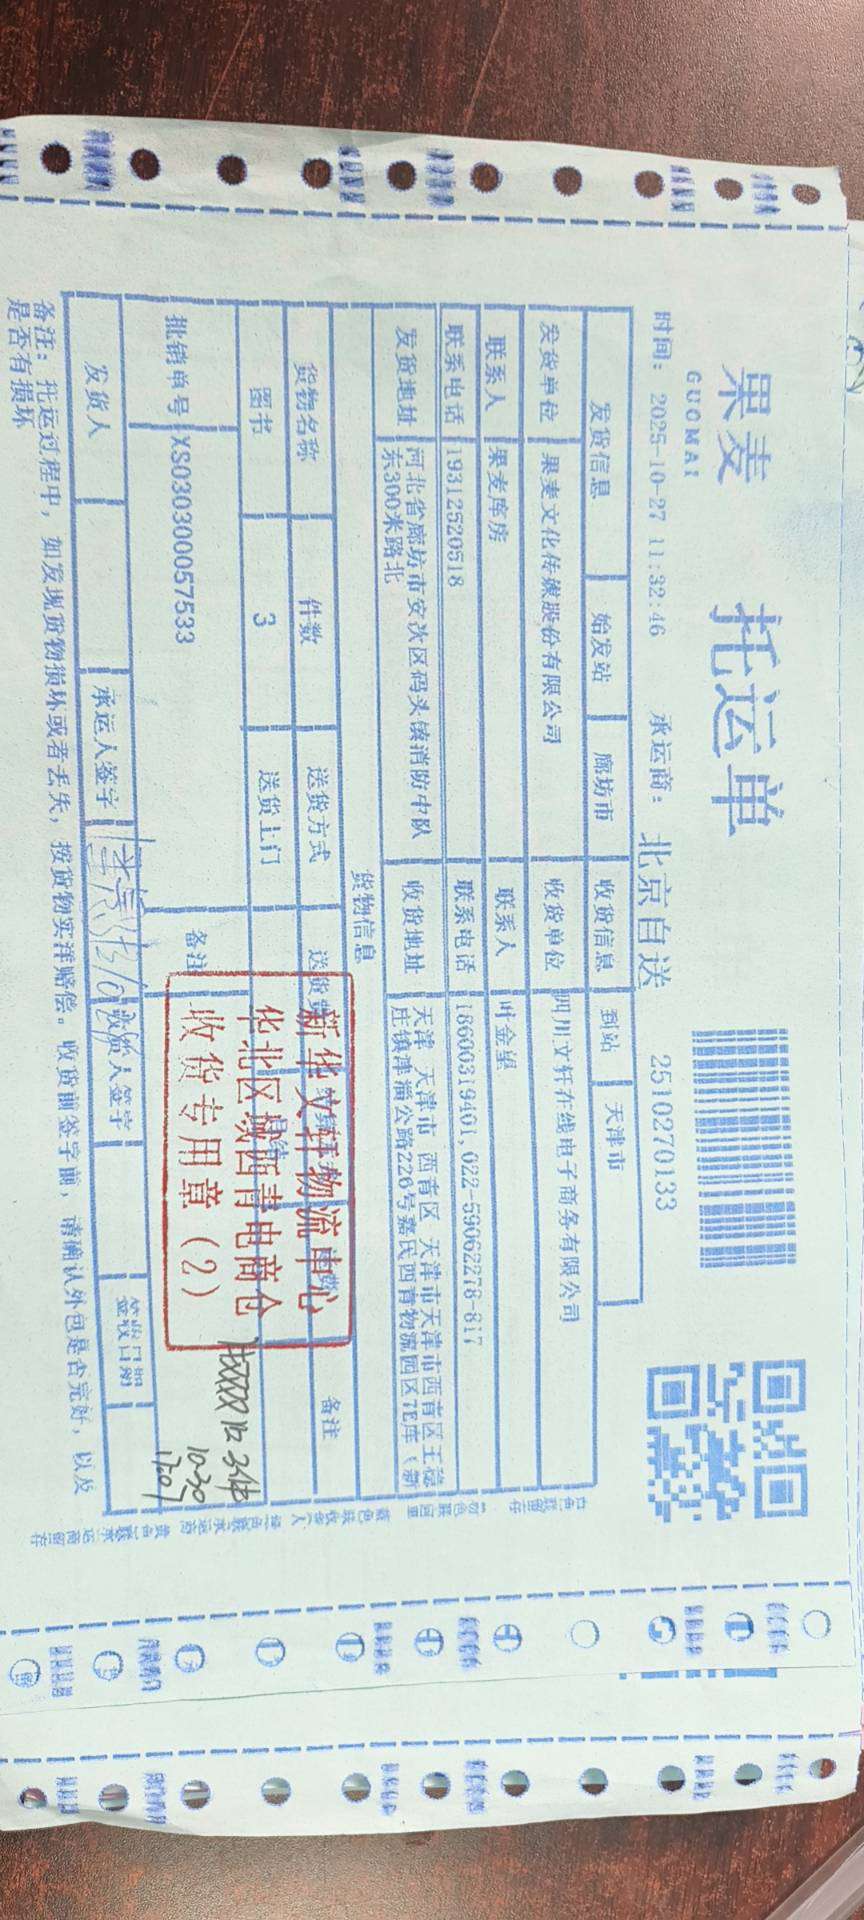 果麦
GUOMAI
托运单
时间：2025-10-27 11:32:46 承运商：北京自送 2510270133
发货信息 始发站 廊坊市 收货信息 到站 天津市
发货单位 果麦文化传媒股份有限公司 收货单位 四川文轩在线电子商务有限公司
联系人 果麦库房 联系人 叶金望
联系电话 19312520518 联系电话 18600319401,022-59062278-817
发货地址 河北省廊坊市安次区码头镇消防中队东300米路北 收货地址 天津 天津市 西青区 天津市天津市西青区王稳庄镇津淄公路226号嘉民西青物流园区7E库（新
货物信息
货物名称 件数 送货方式 备注
图书 3 送货上门
批销单号 XS030300057533 备注
新华文轩物流中心
华北区域西青电商仓
收货专用章（2）
收 3件
10-30
17:07
发货人 承运人签字 收货人签字 签收日期
备注：托运过程中，如发现货物损坏或者丢失，按货物实洋赔偿。收货前签字前，请确认外包是否完好，以及
是否有损坏